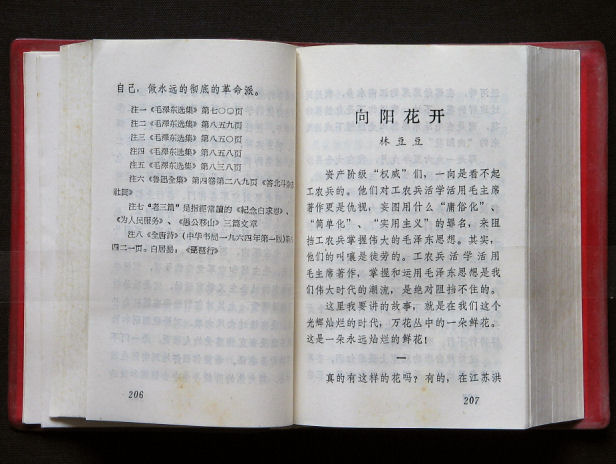 自己，做永远的彻底的革命派。
注一《毛澤东选集》第七〇〇页
注二《毛澤东选集》第八五九页
注三《毛澤东选集》第八五〇页
注四《毛澤东选集》第八五八页
注五《毛澤东选集》第八三八页
注六《鲁迅全集》第四卷第二八九页《答北斗杂志
社問》
注七“老三篇”是指經常讀的《紀念白求恩》、
《为人民服务》、《愚公移山》三篇文章
注八《全唐詩》（中华书局一九六四年第一版）第
四二一页。白居易：《琵琶行》
206
向阳花开
林豆豆
资产阶级“权威”们，一向是看不起
工农兵的。他们对工农兵活学活用毛主席
著作更是仇视，妄图用什么“庸俗化”、
“简单化”、“实用主义”的罪名，来阻
挡工农兵掌握伟大的毛泽东思想。其实，
他们的叫嚷是徒劳的。工农兵活学活用
毛主席著作，掌握和运用毛泽东思想是我
们伟大时代的潮流，是绝对阻挡不住的。
这里我要讲的故事，就是在我们这个
光辉灿烂的时代，万花丛中的一朵鲜花。
这是一朵永远灿烂的鲜花！
一
真的有这样的花吗？有的，在江苏洪
207